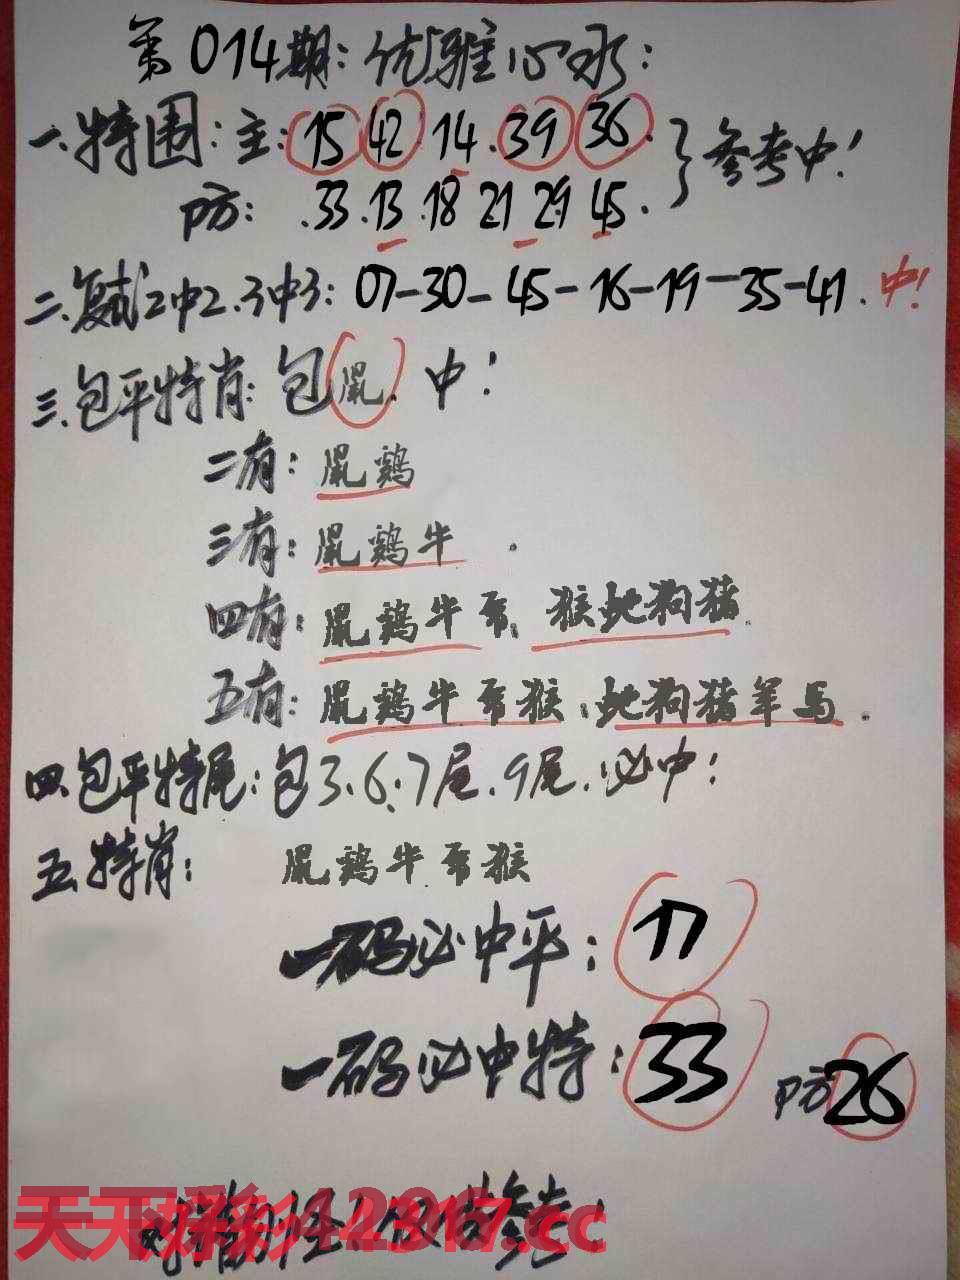 第014期:优雅心水:
一.特围:主:15 42 14.39 36.
防: .33.13.18 21 29 45.
}参考中!
二.复式2中2.3中3:07-30-45-16-19-35-41.中!
三.包平特肖:包鼠.中!
二有:鼠鸡
三有:鼠鸡牛.
四有:鼠鸡牛 猴蛇狗猪.
五有:鼠鸡牛 猴.蛇狗猪羊马.
四.包平特尾:包3.6.7尾.9尾.必中!
五.特肖: 鼠鸡牛 猴
一码必中平:17
一码必中特:33 防26
天天好彩 12317.cc